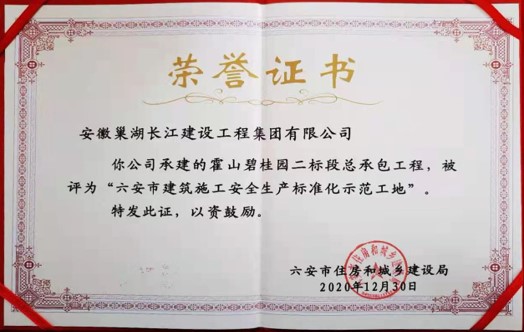 荣誉证书
安徽巢湖长江建设工程集团有限公司
你公司承建的霍山碧桂园二标段总承包工程，被
评为“六安市建筑施工安全生产标准化示范工地”。
特发此证，以资鼓励。
六安市住房和城乡建设局
2020年12月30日